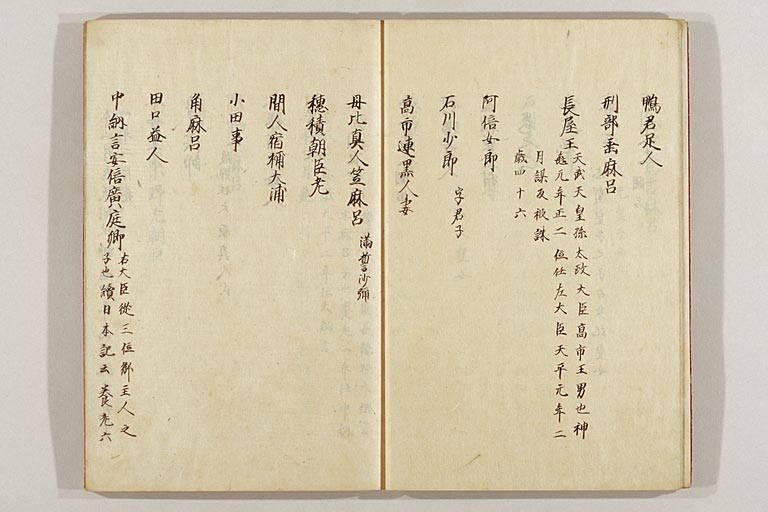 鴨君足人
刑部垂麻呂
長屋王 天武天皇孫太政大臣高市王男也神
亀元年正二位任左大臣天平元年二
月謀反被誅
歳四十六
阿倍女郎
石川少郎 字君子
高市連黒人妻
丹比真人笠麻呂 満誓沙弥
穂積朝臣老
間人宿祢大浦
小田事
角麻呂
田口益人
中納言安倍廣庭卿 右大臣従三位御主人之
子也續日本記云養老六